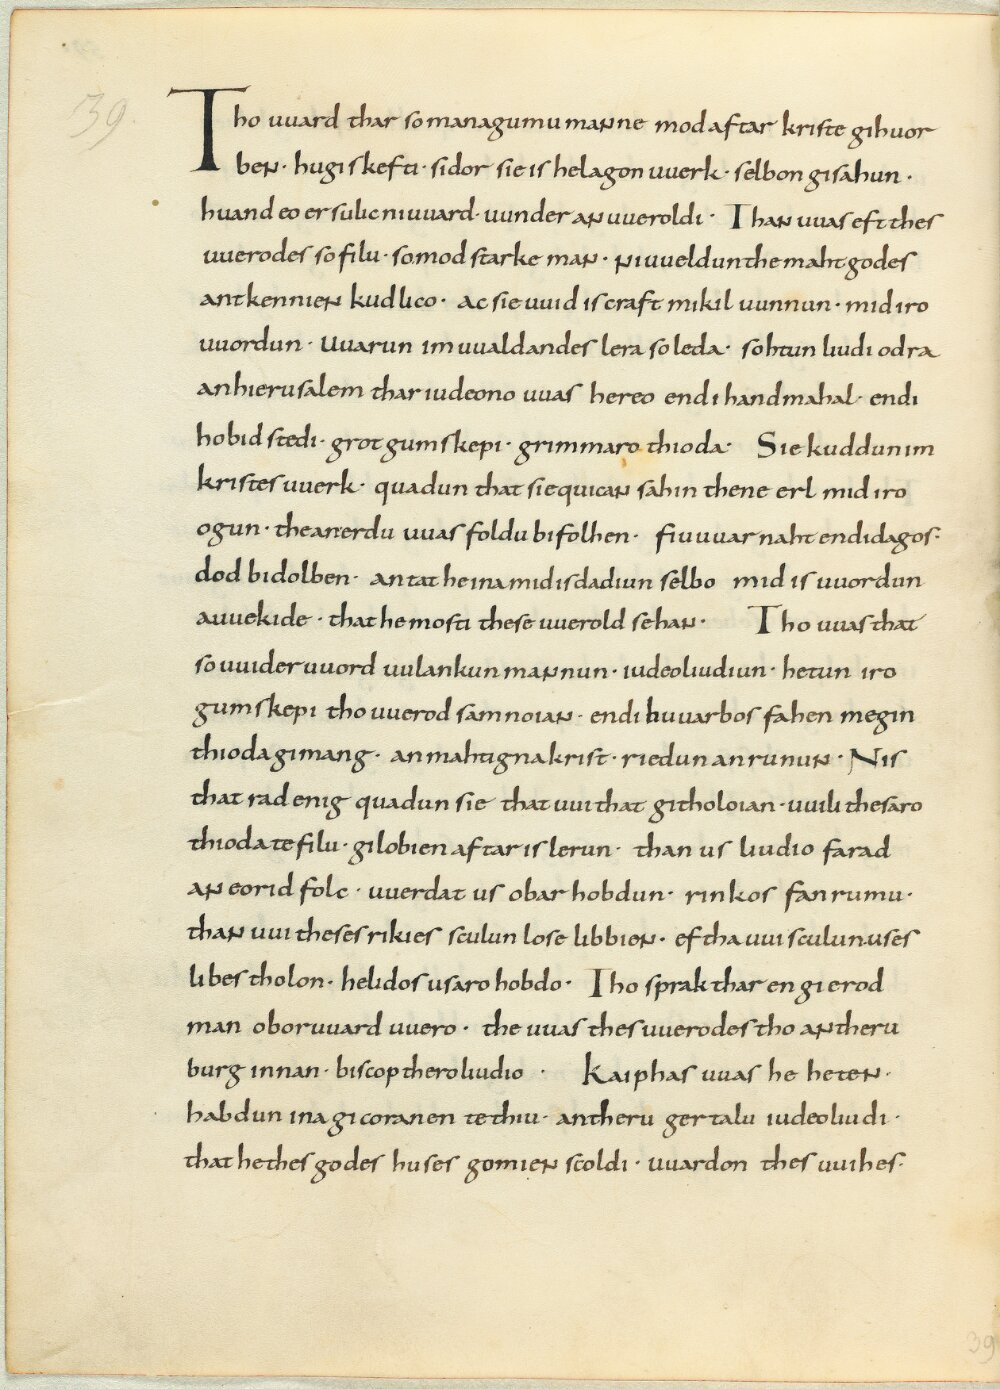 39.
Tho uuard thar so managumu manne mod aftar kriste gihuor
ben· hugiskefti· sidor sie is helagon uuerk· selbon gisahun·
huand eo er sulic ni uuard· uunder an uueroldi· Than uuas eft thes
uuerodes so filu· so mod starke man· ni uueldun the maht godes
antkennien kudlico· ac sie uuid is craft mikil uunnun· mid iro
uuordun· Uuarun im uualdandes lera so leda· sohtun liudi odra
an hierusalem thar iudeono uuas hereo endi handmahal· endi
hobid stedi· grot gumskepi· grimmaro thioda· Sie kuddun im
kristes uuerk· quadun that sie quican sahin thene erl mid iro
ogun· the an erdu uuas foldu bifolhen· fiuuuar naht endi dagos·
dod bidolben· antat he ina mid is dadiun selbo mid is uuordun
auuekide· that he mosti these uuerold sehan· Tho uuas that
so uuider uuord uulankun mannun· iudeo liudiun· hetun iro
gumskepi tho uuerod samnoian· endi huuarbos fahen megin
thioda gimang· an mahtigna krist· riedun an runun· Nis
that rad enig quadun sie that uui that githoloian· uuili thesaro
thioda te filu· gilobien aftar is lerun· than us liudio farad
an eorid folc· uuerdat us obar hobdun· rinkos fan rumu·
than uui theses rikies sculun lose libbien· eftha uui sculun uses
libes tholon· helidos usaro hobdo· Tho sprak thar en gierod
man obor uuard uuero· the uuas thes uuerodes tho an theru
burg innan· biscop thero liudio· Kaiphas uuas he heten·
habdun ina gicoranen te thiu· an theru gertalu iudeo liudi·
that he thes godes huses gomien scoldi· uuardon thes uuihes·
39